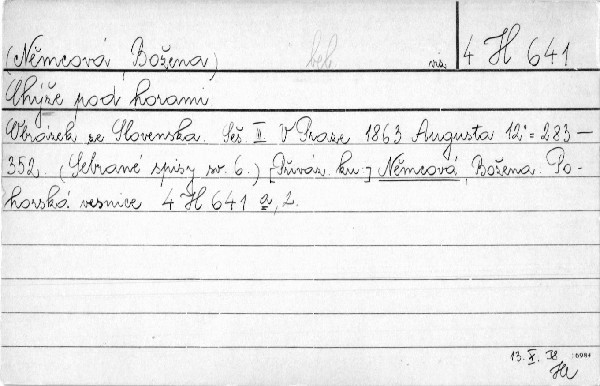 (Němcová, Božena) beb vis. 4 H 641
Chýže pod horami
Obrázek ze Slovenska. Seš. II. V Praze 1863 Augusta 12° = 283-
352. (Sebrané spisy sv. 6.) [Přiváz. ku:] Němcová, Božena. Po-
horská vesnice 4 H 641 a, 2.
13. X. 38